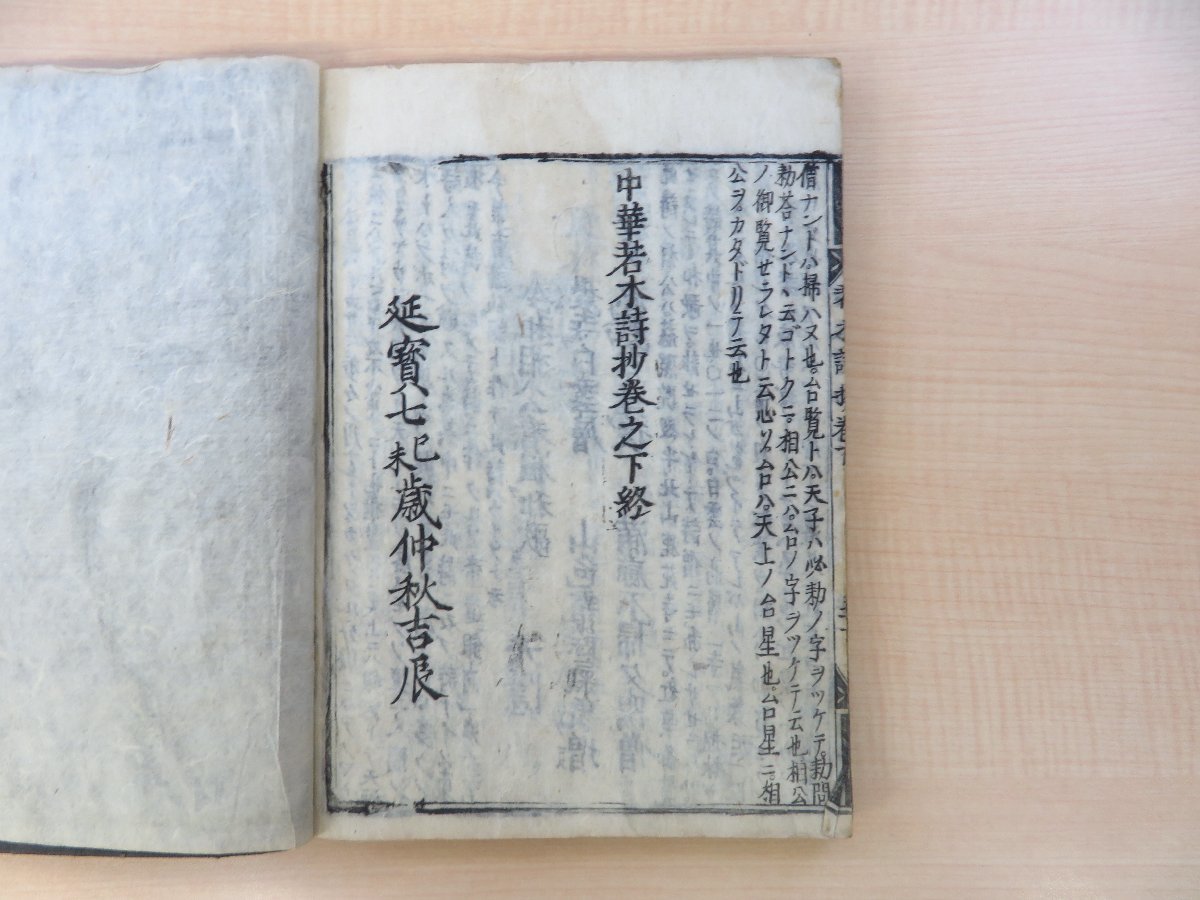 僧ナンドハ掃ハヌ也。台覧トハ。天子ハ必勅ノ字ヲツケテ。勅問
勅答ナンドヽ云ゴトクニ。相公ニハ。台ノ字ヲツケテ云也相公
ノ御覧ぜラレタト云心ソ。台ハ。天上ノ台星也。台星ニ。相
公ヲ。カタドリテ云也
中華若木詩抄巻之下終
延寳七己未歳仲秋吉辰